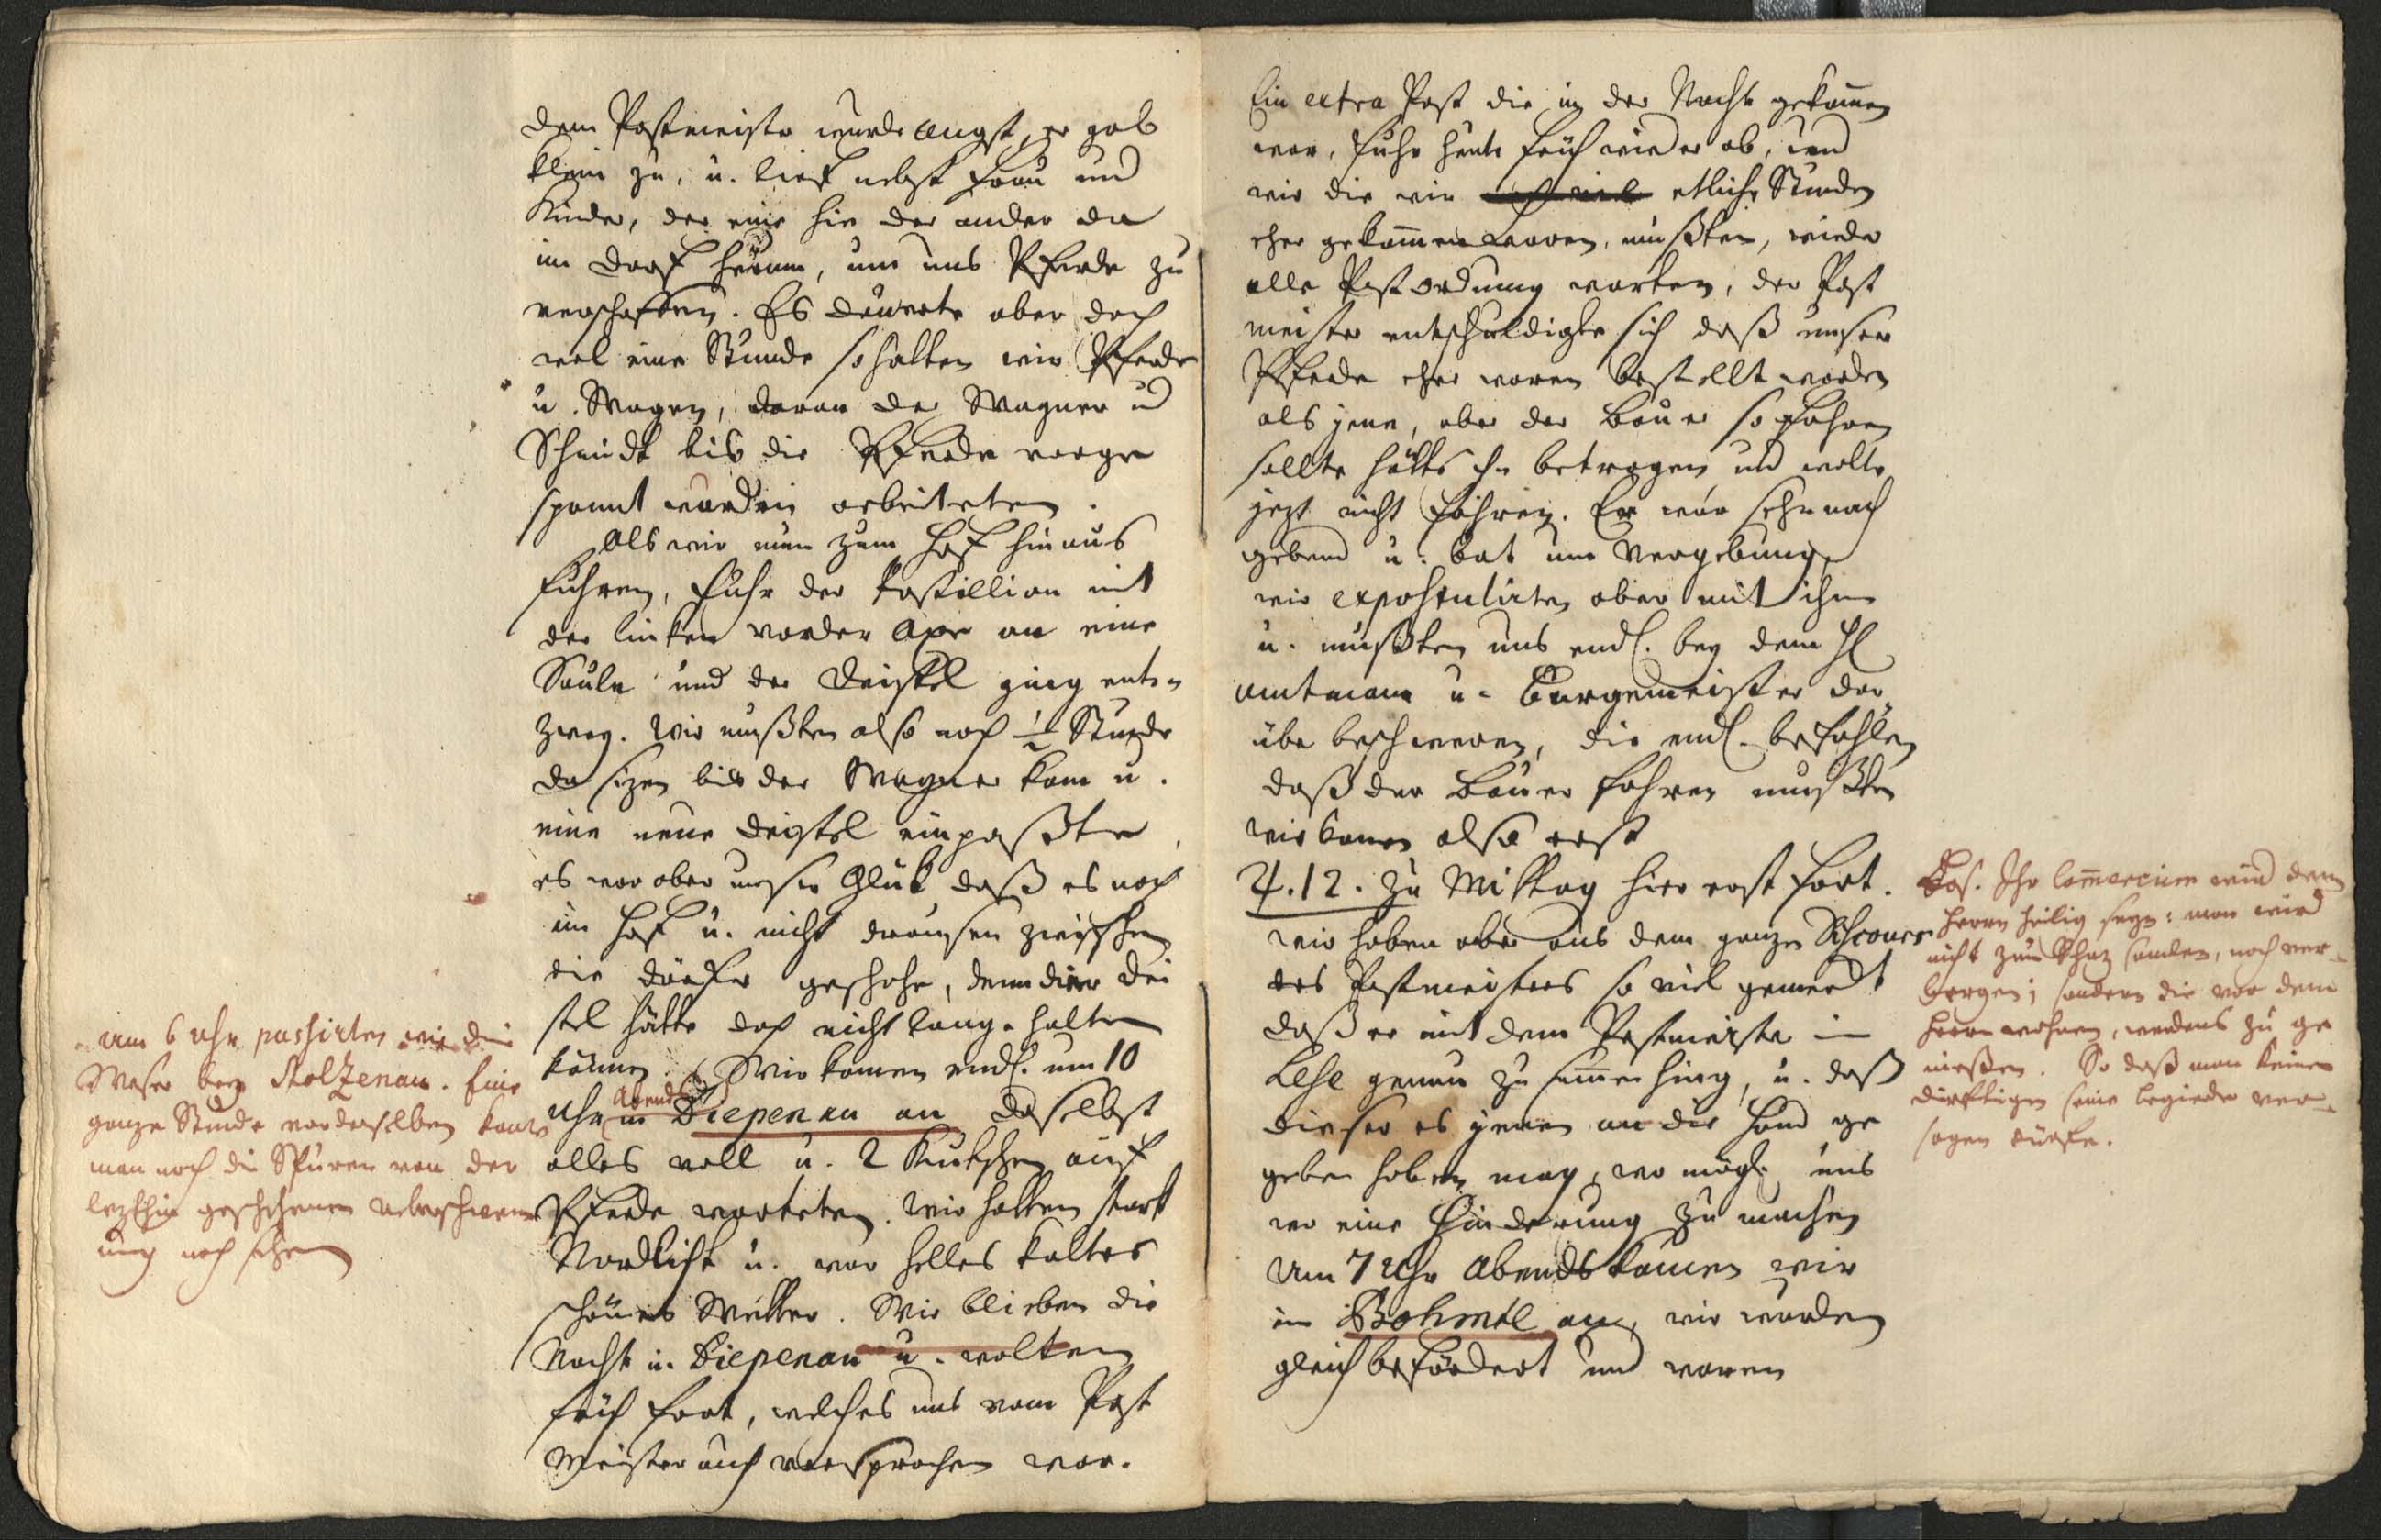 dem Postmeister wurde Angst, er gab
klein zu, u. lief nebst Frau und
Kinder, der eine hie der ander da
im Dorf herum, um uns Pferde zu
verschaffen. Es dauerte aber doch
wol eine Stunde so hatten wir Pferde
u. Wagen, daran der Wagner ud
Schmidt bis die Pferde vorge
spannt wurden arbeiteten.
Als wir nun zum Hof hinaus
fuhren, fuhr der Postillion mit
der linken vorder Axe an eine
Säule und der Deistel ging ent-
zwey. Wir mußten also noch ½ Stunde
da sizen bis der Wagner kam u.
eine neue Deistel einpaßte,
es war aber unser Glük daß es noch
im Hof u. nicht draussen zwischen
die Dörfer geschahe, denn die Dei
stel hätte doch nicht lange halten
können. Wir kamen endl. um 10
Uhr Abends in Diepenau an daselbst
alles voll u. 2 Kutschen auf
Pferde warteten. Wir hatten stark
Nordlicht u. war helles kaltes
schönes Wetter. Wir blieben die
Nacht in Diepenau u. wolten
früh fort, welches uns vom Post
meister auch versprochen war.
Um 6 Uhr passirten wir die
Weser bey Stolzenau. Eine
ganze Stunde vor derselben konte
man noch die Spuren von der
lezthin geschehenen Ueberschwem
ung noch sehen
Ein extra Post die in der Nacht gekommen
war, fuhr heute früh wieder ab, und
wir die wir etliche Stunden
eher gekommen waren, mußten, wieder
alle Postordnung warten, der Post
meister entschuldigte sich daß unsere
Pferde eher waren bestellt worden
als jene, aber der Bauer so fahren
sollte hätte ihn betrogen und wolte
jezt nicht fahren. Er war sehr nach
gebend u. bat um Vergebung,
wir expostulirten aber mit ihm
u. mußten uns endl. bey dem H
Amtmann u. Burgemeister dar
über beschweren, die endl. befohlen
daß der Bauer fahren mußte
wir kamen also erst
♃. 12. zu Mittag hier erst fort.
wir haben aber aus dem ganzen Discours
des Postmeisters so viel gemerkt
daß er mit dem Postmeister in
Lese genau zusammen hing, u. daß
dieser es jenen an die Hand ge
geben haben mag, wo mögl. uns
wo eine Hinderung zu machen
Um 7 Uhr Abends kamen wir
in Bohmte an, wir wurden
gleich befördert und waren
Los. Ihr Commercium wird dem
Herrn heilig seyn: man wird
nicht zum Schaz samlen, noch ver-
bergen; sondern die vor dem
Herrn wohnen, werdens zu ge
niessen. So daß man keinen
dürftigen seine Begierde ver-
sagen dürfte.